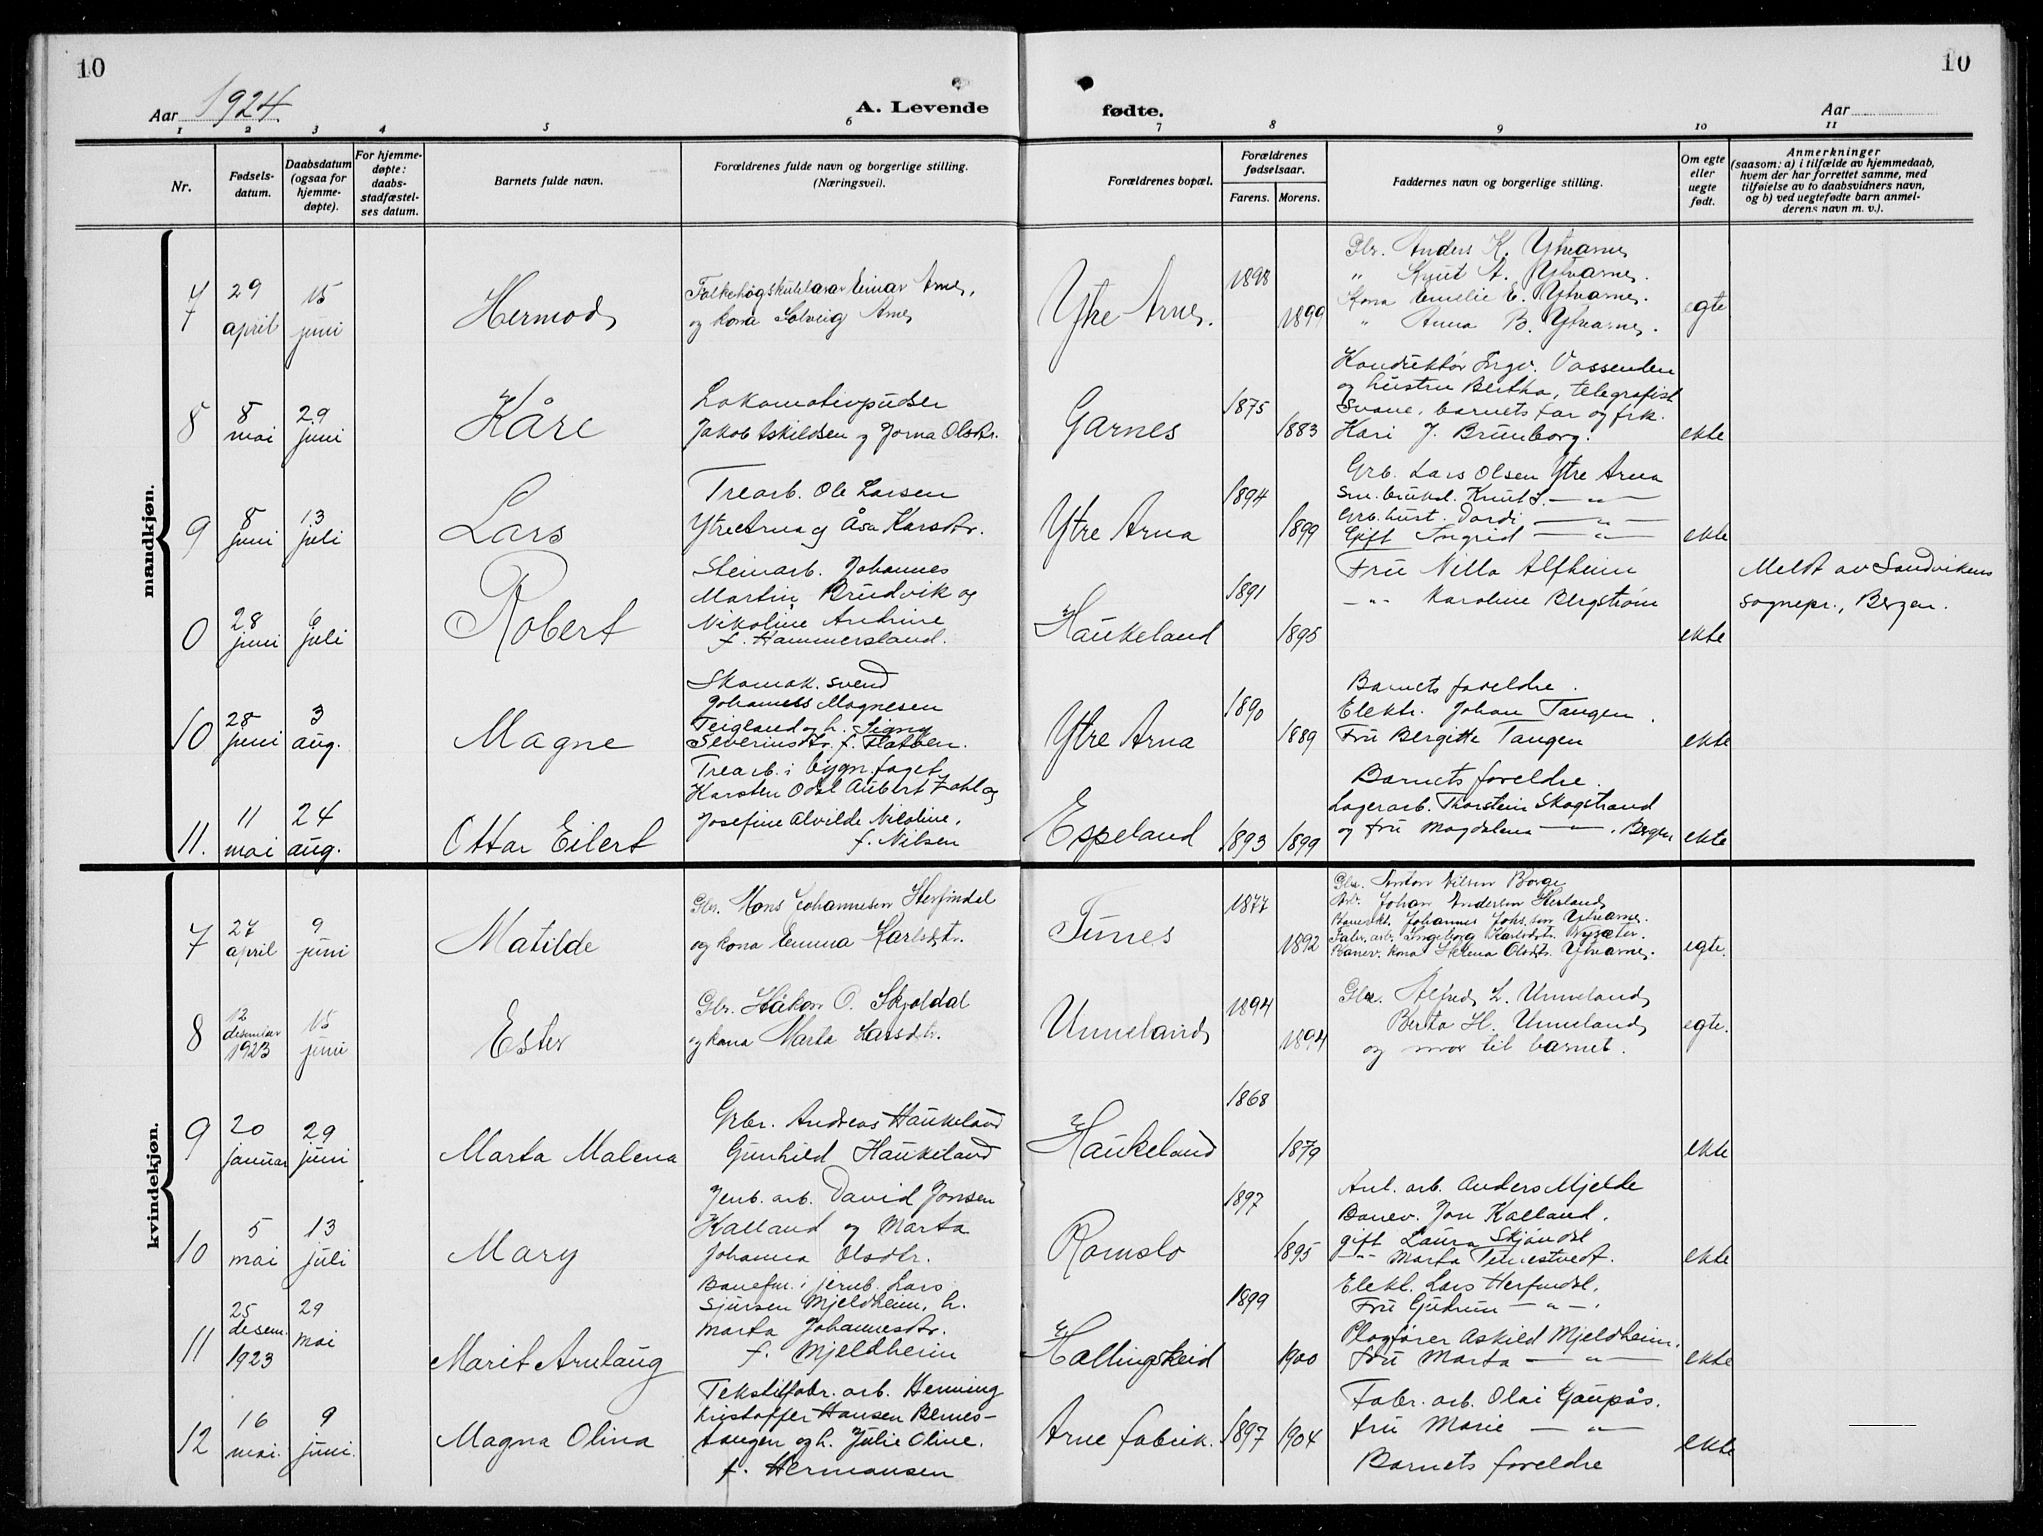 10
10
Aar 1924.
A. Levende
fødte.
Aar
1 2 3 4 5 6 7 8 9 10 11
Nr.
Fødsels-
datum.
Daabsdatum
(ogsaa for
hjemme-
døpte).
For hjemme-
døpte:
daabs-
stadfæstel-
ses datum.
Barnets fulde navn.
Forældrenes fulde navn og borgerlige stilling.
(Næringsvei).
Forældrenes bopæl.
Forældrenes
fødselsaar.
Farens. Morens.
Faddernes navn og borgerlige stilling.
Om egte
eller
uegte
født.
Anmerkninger
(saasom: a) i tilfælde av hjemmedaab,
hvem der har forrettet samme, med
tilføielse av to daabsvidners navn,
og b) ved uegtefødte barn anmel-
derens navn m. v.).
mandkjøn.
7
29
april
15
juni
Hermod
Folkehøgskulelærar Einar Arne,
og kona Solveig Arne
Ytre Arne.
1898
1899
Gbr. Anders K. Ytrearne
" Knut A. Ytrearne.
Kona Emelie E. Ytrearne.
" Anna B. Ytrearne.
egte
8
8
mai
29
juni
Kåre
Lokomotivpudser
Jakob Askildsen og Jorna Olsdtr.
Garnes
1875
1883
Konduktør Ingv. Vassenden
og hustru Bertha, telegrafist
Svane, barnets far og frk.
Kari J. Brunborg.
ekte
9
8
juni
13
juli
Lars
Trearb. Ole Larsen
Ytre Arna og Åsa Karsdtr.
Ytre Arna
1894
1899
Grb. Lars Olsen Ytre Arna
Sm. bruksl. Knut L. — " —
Grb. hust. Dordi — " —
Gift Ingrid — " —
ekte
0
28
juni
6
juli
Robert
Steinarb. Johannes
Martin Brudvik og
Nikoline Antrine
f. Hammersland.
Haukeland
1891
1895
Fru Nilla Alfheim
— " — Karoline Bergstrøm
ekte
Meldt av Sandvikens
sognepr., Bergen.
10
28
juni
3
aug.
Magne
Skomak. svend
Johannes Magnesen
Teigland og h. Signy
Severinsdtr. f. Flatøen.
Ytre Arna
1890
1889
Barnets foreldre.
Elektr. Johan Tangen.
Fru Bergitte Tangen
ekte
11.
11
mai
24
aug.
Ottar Eilert
Trearb. i bygn.faget
Karsten Odal Aubert Zahl og
Josefine Alvilde Nicoline,
f. Nilsen
Espeland
1893
1899
Barnets foreldre.
Lagerarb. Thorstein Skogstrand
og fru Magdalena — " — , Bergen
ekte
kvindekjøn.
7
27
april
9
juni
Matilde
Gbr. Mons Johannesen Herfindal
og kona Emma Karlsdtr.
Tunes
1877
1892
Gbr. Anton Nilsen Borge
Arb. Johan Andersen Herland
Banevkt. Johannes Johs.sen Ytrearne.
Fabr.arb. Ingeborg Karlsdtr. Nysæter.
Banev. kona Helena Olsdtr. Ytrearne.
egte.
8
12
desember
1923
15
juni
Ester
Gbr. Håkon O. Skjoldal
og kona Marta Larsdtr.
Unneland
1894
1894
Gbr. Alfred L. Unneland
Berta H. Unneland
og mor til barnet.
egte.
9
20
januar
29
juni
Marta Malena
Grbr. Andreas Haukeland
Gunhild Haukeland
Haukeland
1868
1879
ekte
10
5
mai
13
juli
Mary
Jernb. arb. David Jonsen
Kalland og Marta
Johanna Olsdtr.
Romslo
1897
1895
Anl. arb. Anders Mjelde
Banev. Jon Kalland.
gift Laura Skjøndal
— " — Marta Teinestvedt.
ekte
11
25
desem.
1923
29
mai
Marit Arnlaug
Banefm. i jernb. Lars
Sjursen Mjeldheim, h.
Marta Johannesdtr.
f. Mjeldheim
Hallingskeid
1899
1900
Elekl. Lars Herfindal.
Fru Gudrun — " — .
Plogfører Askild Mjeldheim.
Fru Marta — " —
ekte
12
16
mai.
9
juni.
Magna Olina
Tekstilfabr. arb. Henning
Kristoffer Hansen Bernes-
tangen og h. Julie Oline.
f. Hermansen
Arne fabrik.
1897
1904
Fabr. arb. Olai Gaupås.
fru Marie — " —
Barnets foreldre
ekte